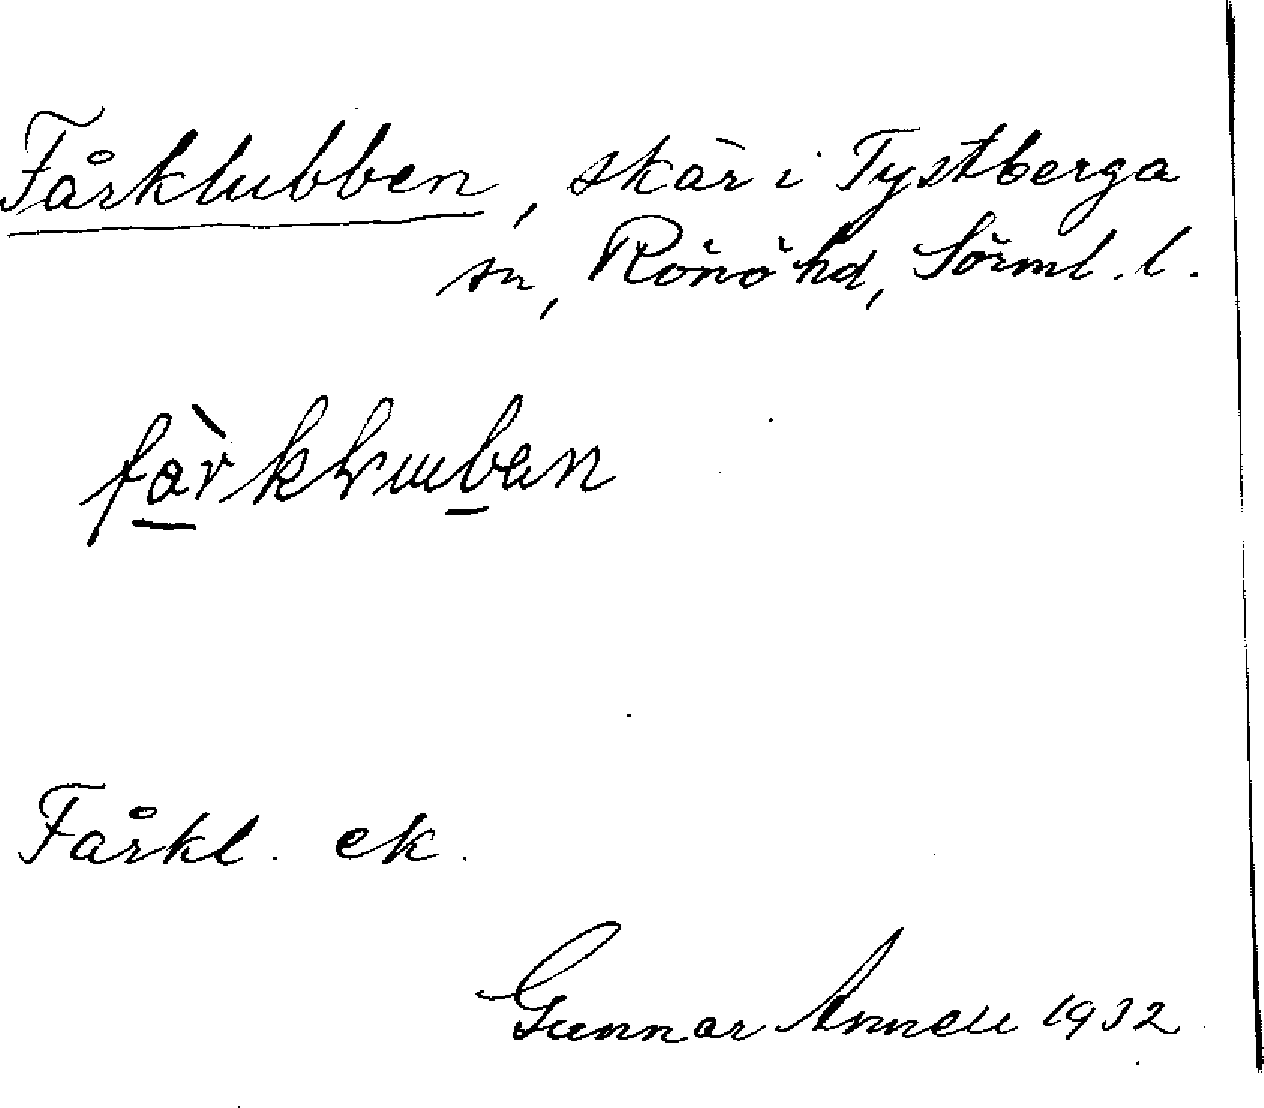 Fårklubben, skär i Tystberga
sn, Rönö hd, Sörml. l.
Fårkl. ek.
Gunnar Annell 1932